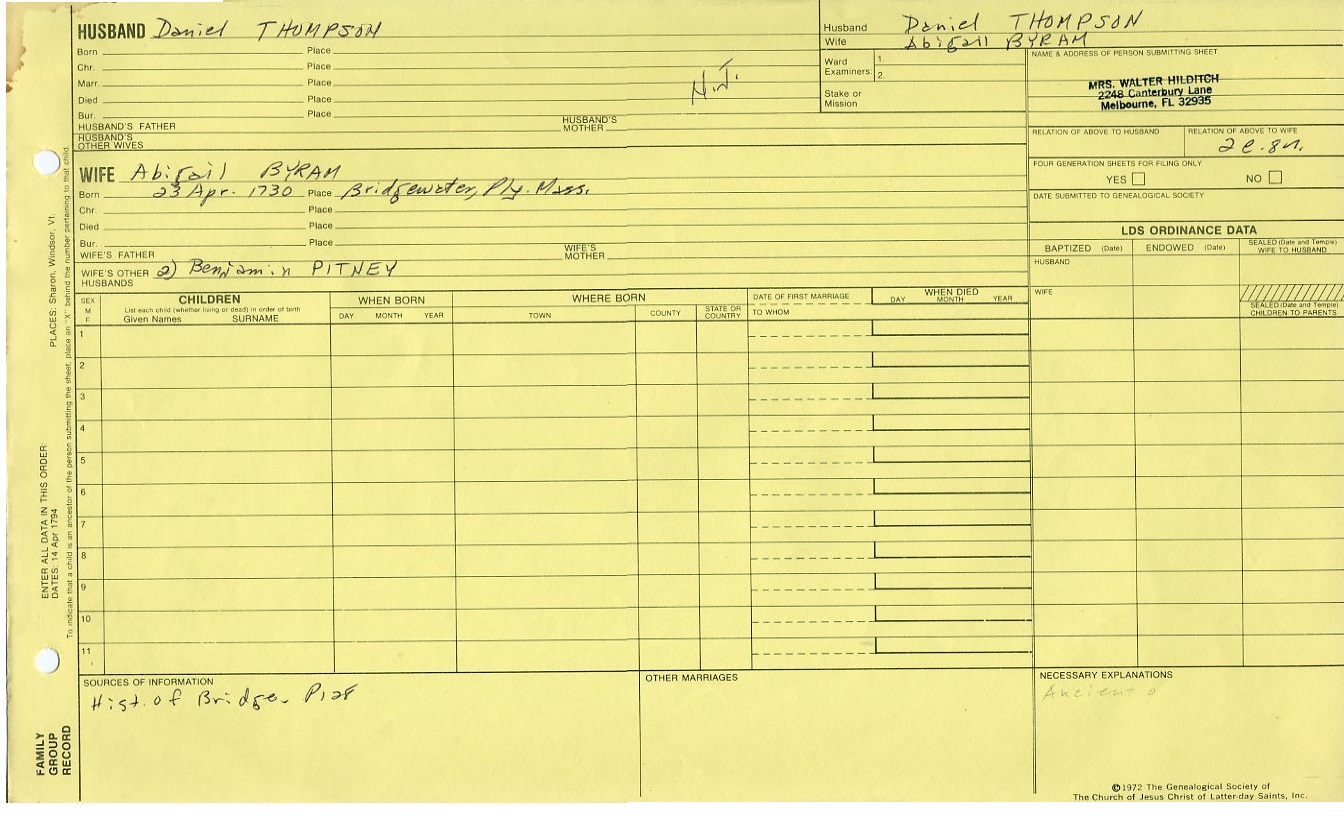 HUSBAND Daniel THOMPSON
Born Place
Chr. Place
Marr. Place
Died Place
Bur. Place
N.J.
HUSBAND'S FATHER HUSBAND'S MOTHER
HUSBAND'S OTHER WIVES
WIFE Abigail BYRAM
Born 23 Apr. 1730 Place Bridgewater, Ply. Mass.
Chr. Place
Died Place
Bur. Place
WIFE'S FATHER WIFE'S MOTHER
WIFE'S OTHER HUSBANDS 2) Benjamin PITNEY
Husband Daniel THOMPSON
Wife Abigail BYRAM
Ward Examiners: 1.
2.
Stake or Mission
NAME & ADDRESS OF PERSON SUBMITTING SHEET
MRS. WALTER HILDITCH
2248 Canterbury Lane
Melbourne, FL 32935
RELATION OF ABOVE TO HUSBAND RELATION OF ABOVE TO WIFE
2c.8r.
FOUR GENERATION SHEETS FOR FILING ONLY
YES NO
DATE SUBMITTED TO GENEALOGICAL SOCIETY
LDS ORDINANCE DATA
BAPTIZED (Date) ENDOWED (Date) SEALED (Date and Temple) WIFE TO HUSBAND
HUSBAND
WIFE
SEALED (Date and Temple) CHILDREN TO PARENTS
SEX M F
CHILDREN
List each child (whether living or dead) in order of birth
Given Names SURNAME
WHEN BORN
DAY MONTH YEAR
WHERE BORN
TOWN COUNTY STATE OR COUNTRY
DATE OF FIRST MARRIAGE
TO WHOM
WHEN DIED
DAY MONTH YEAR
1
2
3
4
5
6
7
8
9
10
11
SOURCES OF INFORMATION
Hist. of Bridge. P128
OTHER MARRIAGES
NECESSARY EXPLANATIONS
Ancient o
©1972 The Genealogical Society of
The Church of Jesus Christ of Latter-day Saints, Inc.
FAMILY
GROUP
RECORD
ENTER ALL DATA IN THIS ORDER:
DATES: 14 Apr 1794
PLACES: Sharon, Windsor, Vt.
To indicate that a child is an ancestor of the person submitting the sheet, place an "X" behind the number pertaining to that child.